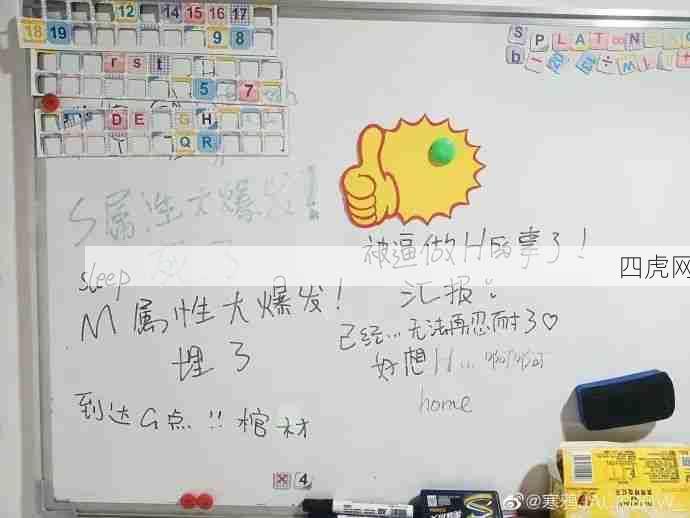 12 14 15 16 17
18 19 9 8
r s t
5 7
D E G H
Q R
S P L A T N
b
S属性大爆发!
死了
sleep
M属性大爆发!
埋了
到达G点!!棺材
被逼做H的事了!
汇报:
已经...无法再忍耐了♡
好想H...啊啊啊
home
四虎网
4
@寒鸦